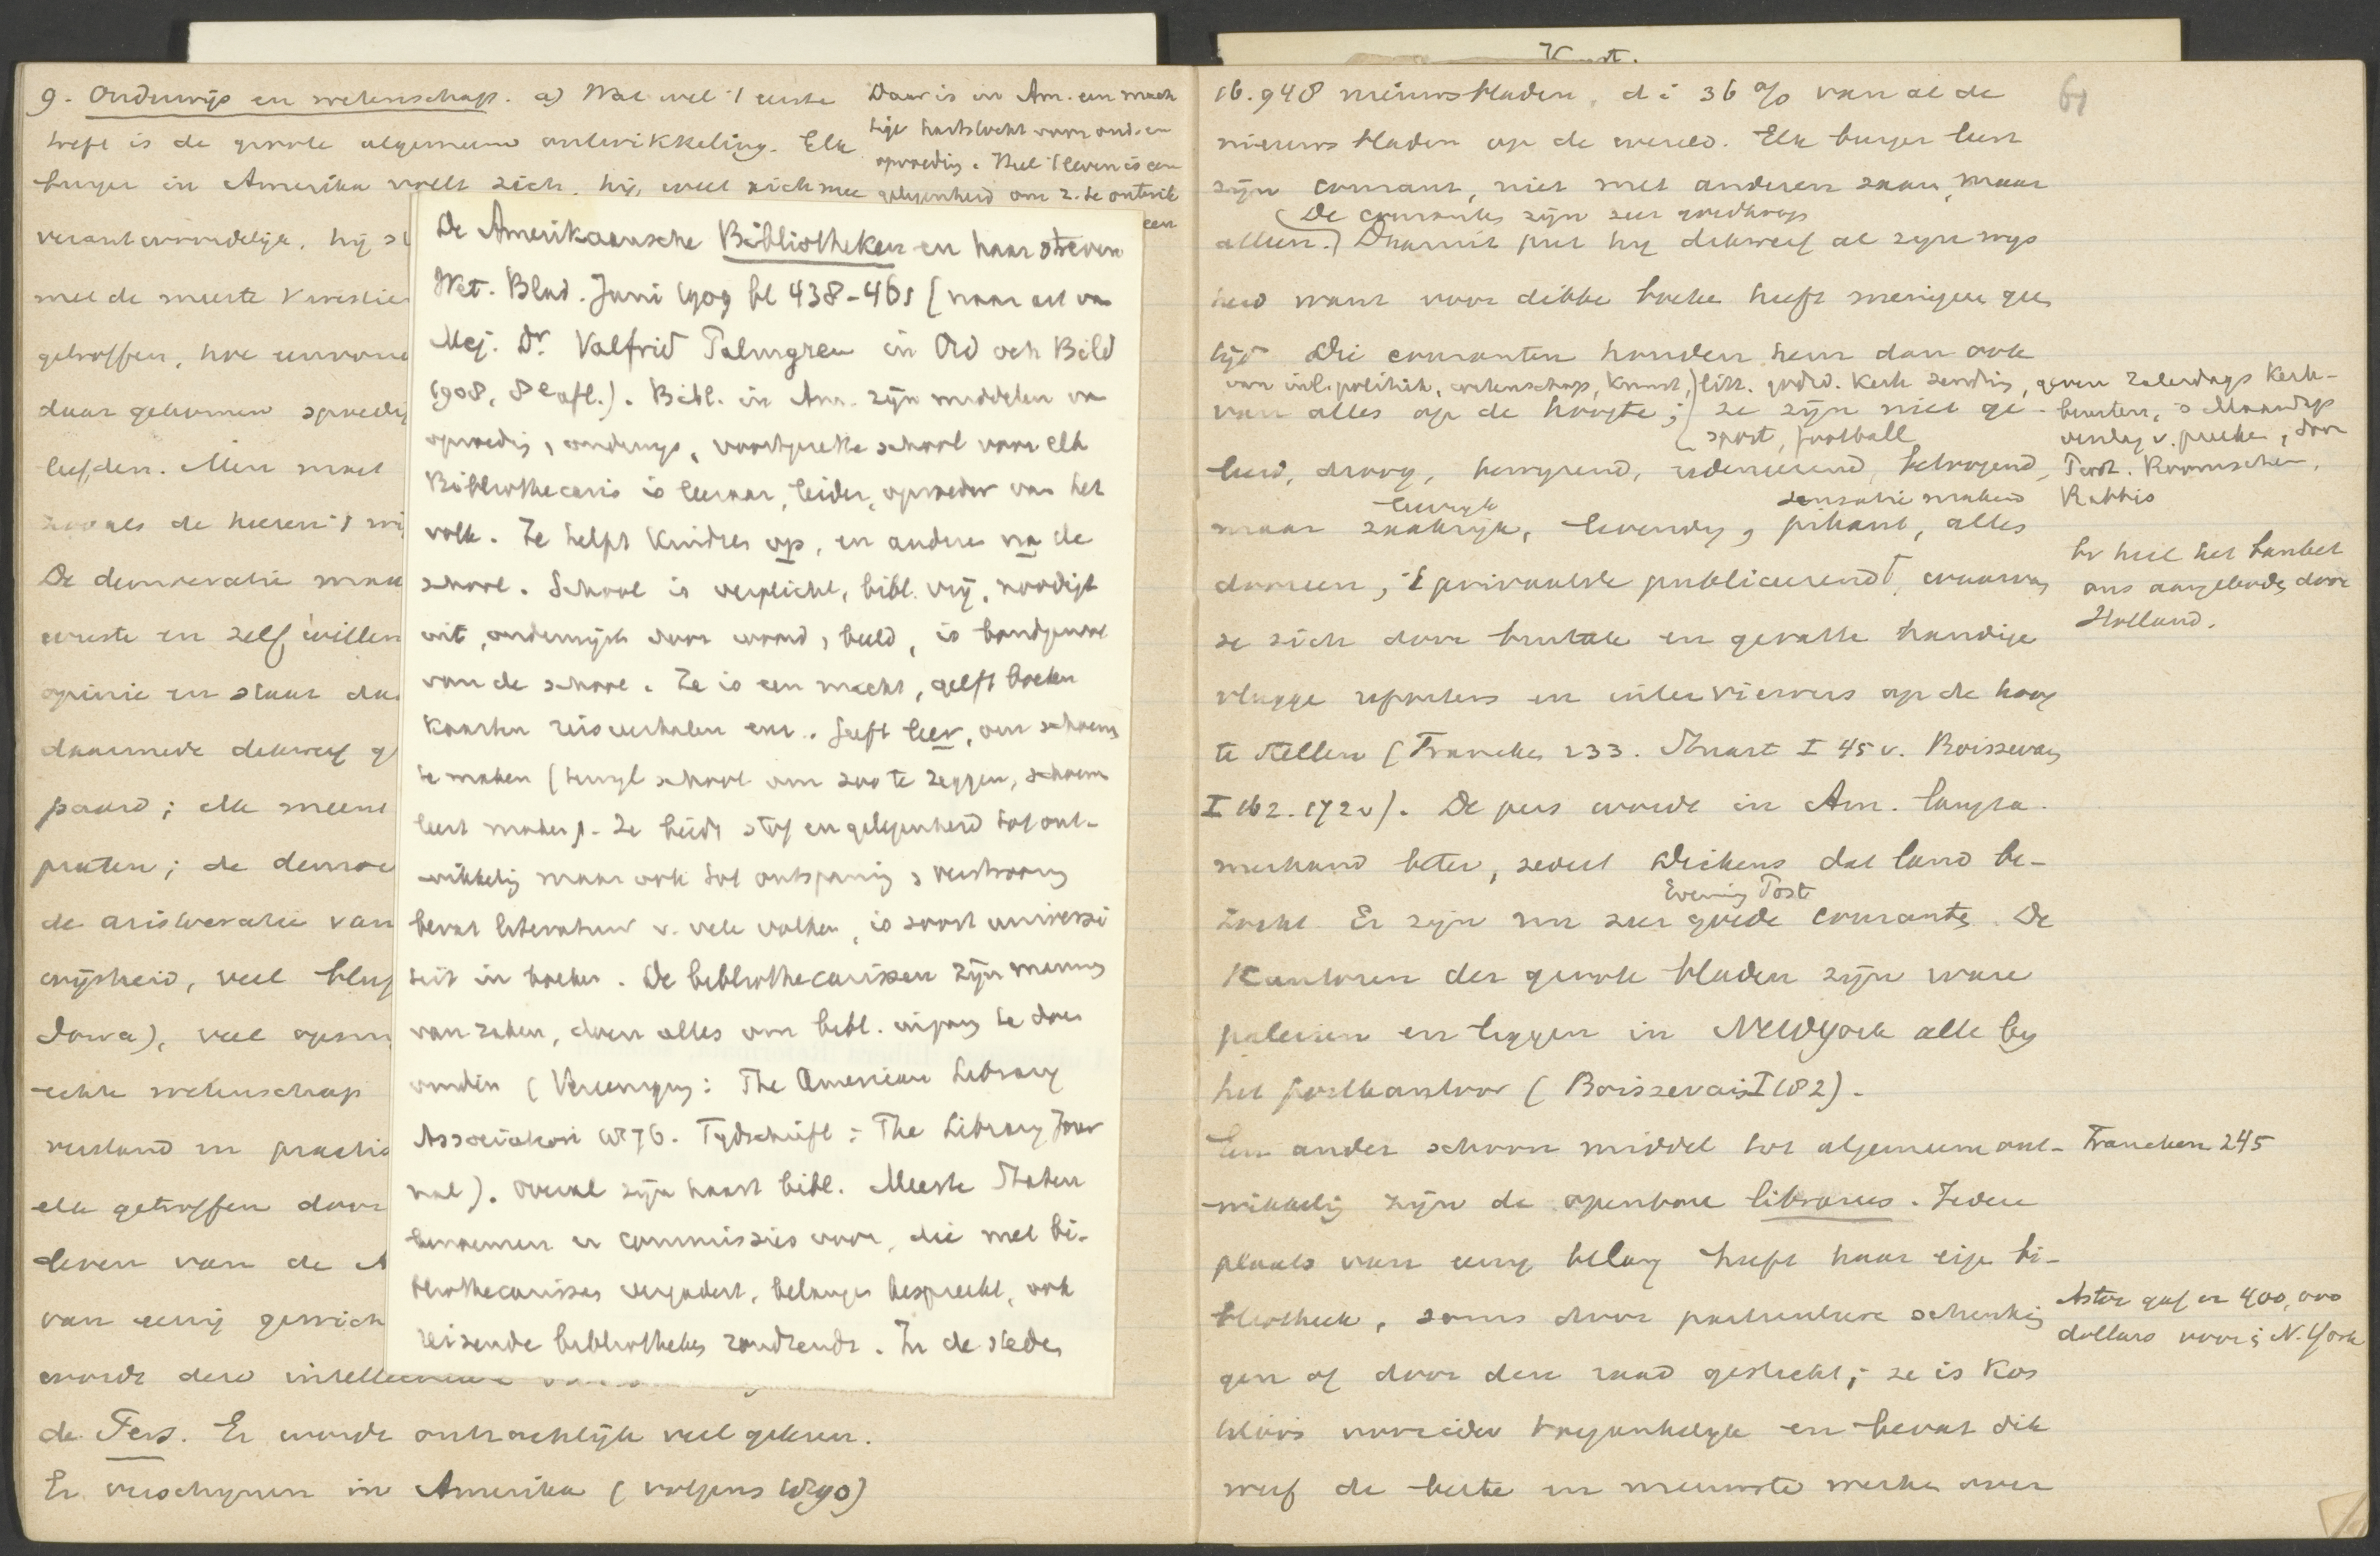 9. Onderwijs en wetenschap. a) Wat wel 't eerste
treft is de groote algemeene ontwikkeling. Elk
burger in Amerika voelt zich. hij, weet zich mee
verantwoordelijk, hij
met de meeste
getroffen, hoe
daar gekomen spoedig
liefden. Men moet
zooals de heeren 't
De democratie
eerste en zelf willen
opinie en staat
daarmede dikwerf
paard; elk meent
praten; de
de aristocratie van
wijsheid, veel
Iowa), veel
echte wetenschap
verstand en
elk getroffen door
leven van de A
van eenig
wordt door
de Pers. Er wordt ontzachlijk veel gelezen.
Er verschijnen in Amerika (volgens 1890)
Daar is in Am. een mach
tige hartstocht voor ond. en
opvoeding. Heel 't leven is een
gelegenheid om z. te ontwik
een
De Amerikaansche Bibliotheken en haar streven
Wet. Blad. Juni 1909 bl 438-465 (naar art van
Mej. Dr. Valfrid Palmgren in Ord och Bild
1908, 8e afl.). Bibl. in Am. zijn middelen van
opvoeding, onderwijs, voortgezette school voor elk
Bibliothecaris is leeraar, leider, opvoeder van het
volk. Ze helpt kindren op, en anderen na de
school. School is verplicht, bibl. vrij, noodigt
uit, onderwijst door woord, beeld, is bondgenoot
van de school. Ze is een macht, geeft boeken
kaarten reisverhalen enz. Geeft leer, om schoenen
te maken (terwijl school om zoo te zeggen, schoenen
leert maken). Ze biedt stof en gelegenheid tot ont-
wikkeling maar ook tot ontspanning, verstrooiing
bevat literatuur v. vele volken, is soort universi
teit in boeken. De bibliothecarissen zijn mannen
van zaken, doen alles om bibl. ingang te doen
vinden (Vereeniging: The American Library
Association 1876. Tydschrift: The Library Jour
nal). Overal zijn haast bibl. Meeste Staten
benoemen er commissies voor, die met bi-
bliothecarissen vergadert, belangen bespreekt, ook
reizende bibliotheken rondzendt. In de steden
16.948 nieuwsbladen, d i 36 % van al de
nieuwsbladen op de wereld. Elk burger leest
zijn courant, niet met anderen saam, maar
(De couranten zijn zeer goedkoop
alleen.) Daaruit put hij dikwerf al zijn wijs
heid want voor dikke boeken heeft menigeen geen
tijd Die couranten houden hem dan ook
van inl. politiek, wetenschap, kunst, litt. godsd. Kerk zending,
van alles op de hoogte; ze zijn niet ge-
sport, football
leerd, droog, redeneerend, betoogend,
leerrijk sensatie makend
maar zaakrijk, levendig, pikant, alles
dooreen, 't privaatste publiceerend, waarvan
ze zich door brutale en gevatte handige
vlugge reporters en interviewers op de hoog
te stellen (Francken 233. Stuart I 45 v. Boissevain
I 162. 172v). De pers wordt in Am. langza-
merhand beter, sedert Dickens dat land be-
Evening Post
zocht. Er zijn nu zeer goede couranten. De
Kantoren der groote bladen zijn ware
paleizen en liggen in NewYork alle bij
het postkantoor (Boissevain I 182).
Een ander schoon middel tot algemeene ont-
wikkeling zijn de openbare libraries. Iedere
plaats van eenig belang heeft haar eigen bi-
bliotheek, soms door particuliere schenkin
gen of door den raad gesticht; ze is kos
teloos voor ieder toegankelijk en bevat dik
werf de beste en nieuwste werken over
geven Zaterdags Kerk-
beurten, 's Maandags
verslag v. preeken, door
Prot. Roomschen,
Rabbis
ons aangeboden door
Holland.
Francken 245
Astor gaf er 400,000
dollars voor in N. York
61